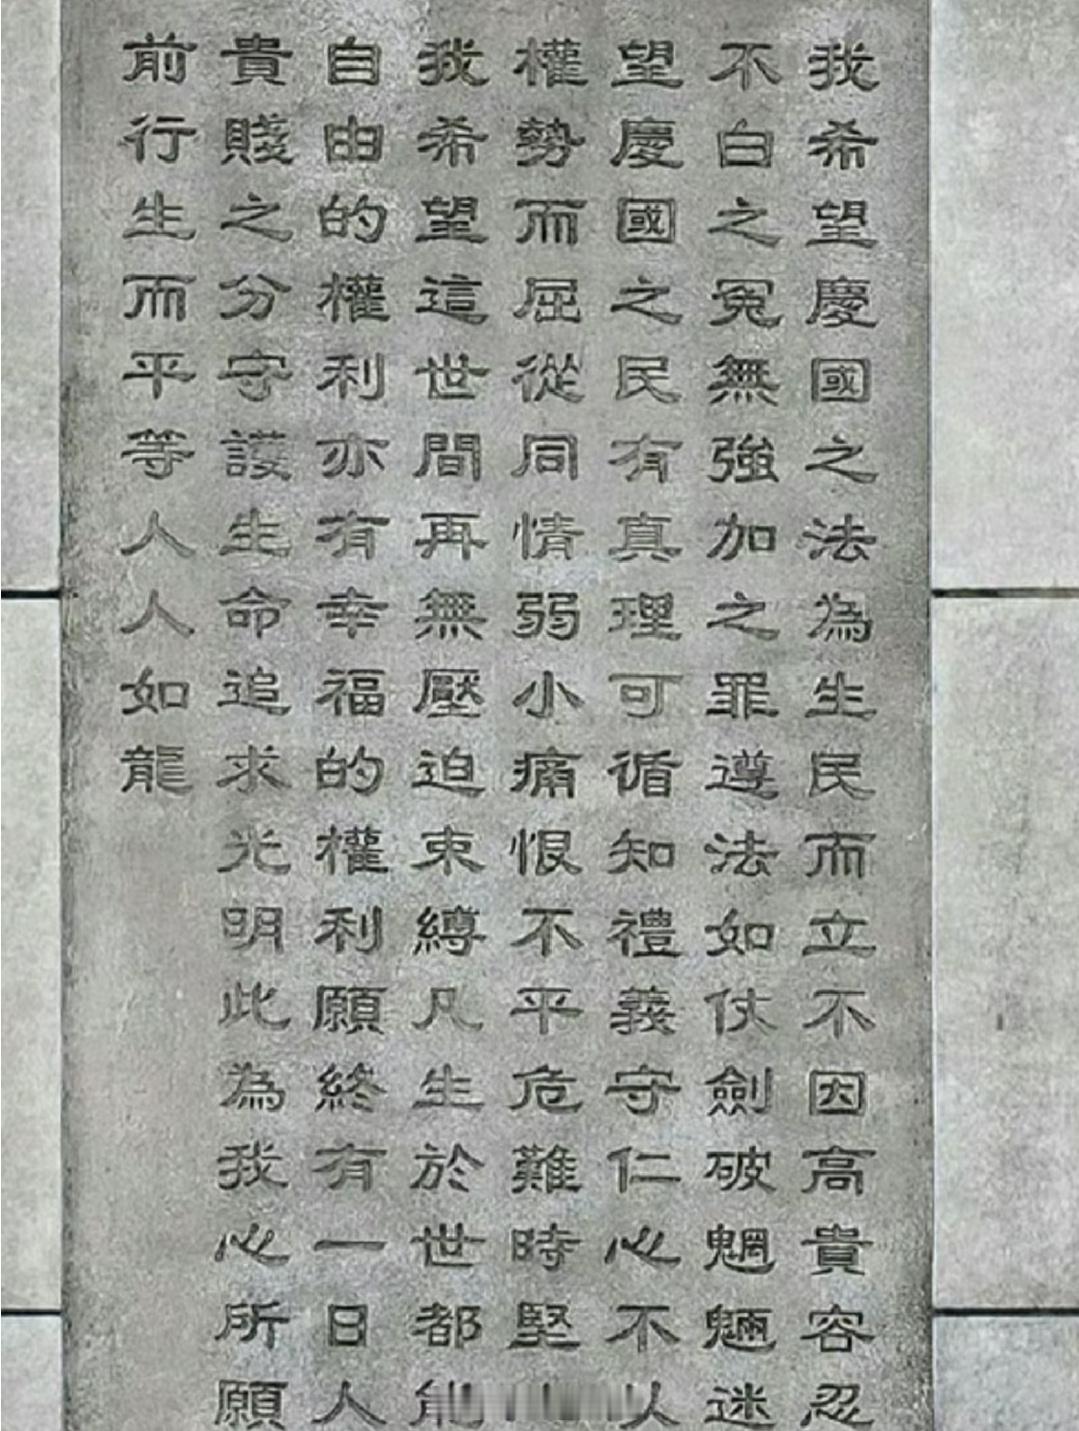 我希望慶國之法為生民而立不因高貴容忍
不白之冤無強加之罪遵法如仗劍破魍魎迷
望慶國之民有真理可循知禮義守仁心不
權勢而屈從同情弱小痛恨不平危難時堅
我希望這世間再無壓迫束縛凡生於世都能
自由的權利亦有幸福的權利願終有一日人
貴賤之分守護生命追求光明此為我心所願
前行生而平等人人如龍